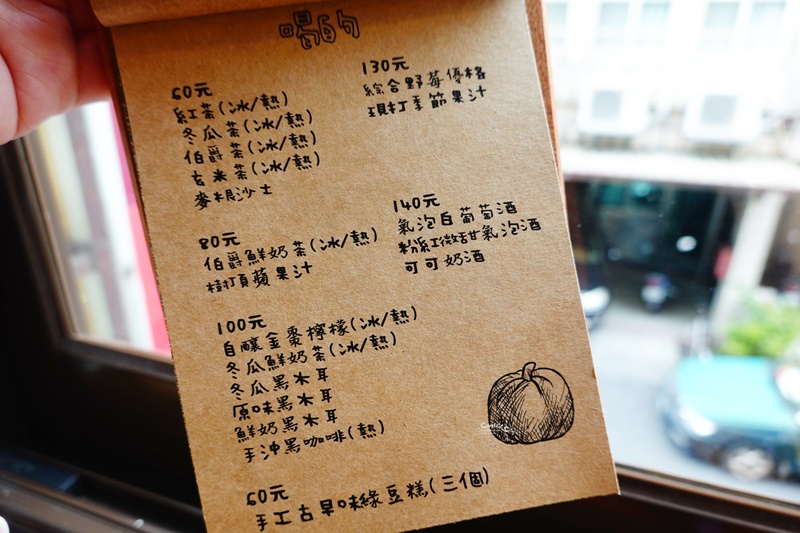 喝的
60元
紅茶(冰/熱)
冬瓜茶(冰/熱)
伯爵茶(冰/熱)
玄米茶(冰/熱)
麥根沙士
80元
伯爵鮮奶茶(冰/熱)
樹頂蘋果汁
100元
自釀金棗檸檬(冰/熱)
冬瓜鮮奶茶(冰/熱)
冬瓜黑木耳
原味黑木耳
鮮奶黑木耳
手沖黑咖啡(熱)
60元
手工古早味綠豆糕(三個)
130元
綜合野莓優格
現打季節果汁
140元
氣泡白葡萄酒
粉紅微甜氣泡酒
可可奶酒